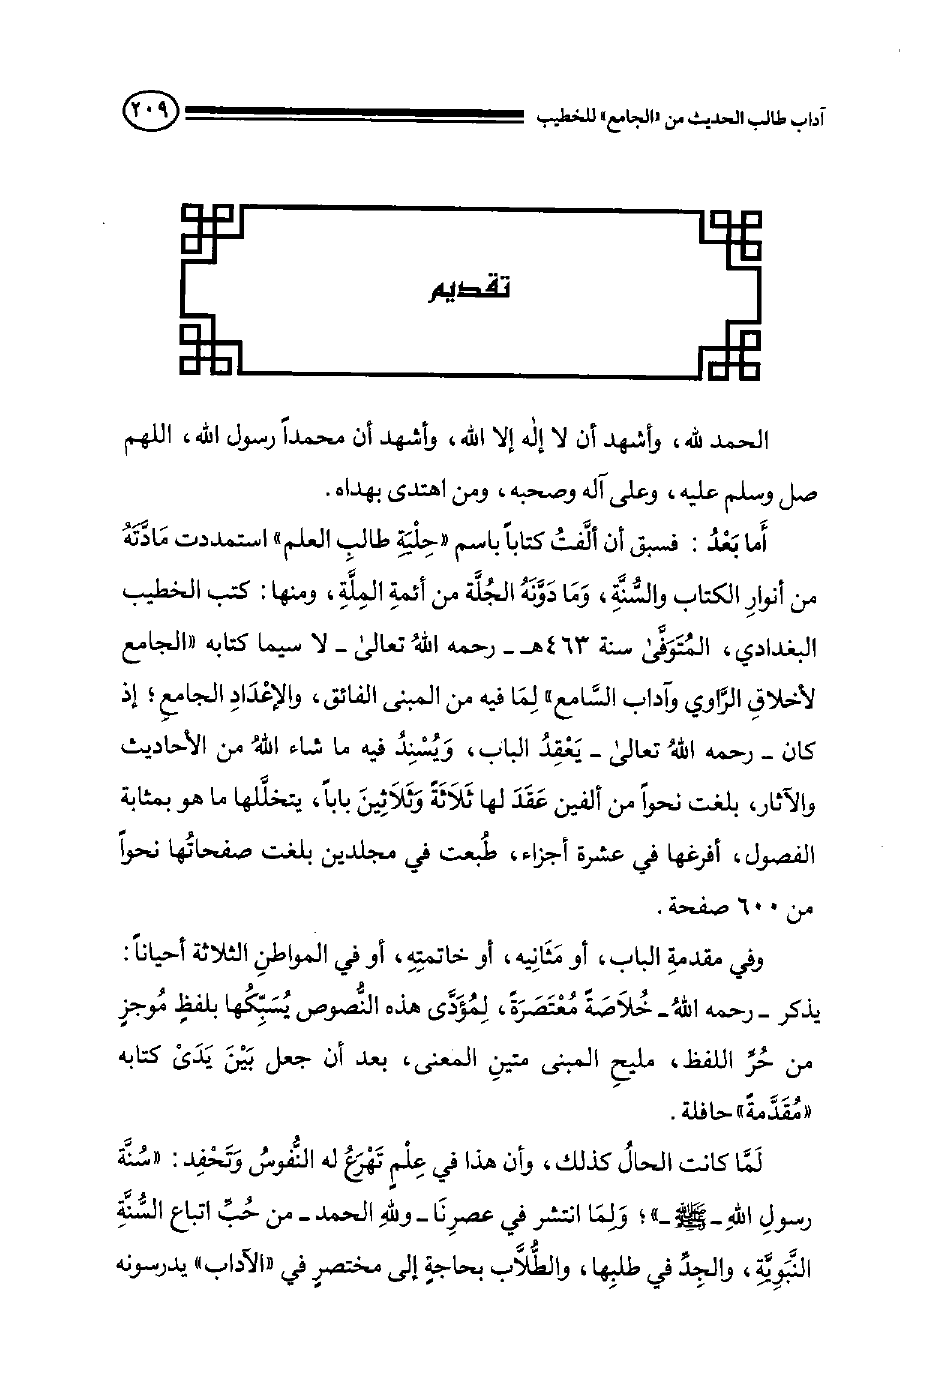 آداب طالب الحديث من «الجامع» للخطيب ٢٠٩
تقديم
الحمد لله، وأشهد أن لا إلٰه إلا الله، وأشهد أن محمداً رسول الله، اللهم
صل وسلم عليه، وعلى آله وصحبه، ومن اهتدى بهداه.
أَما بَعْدُ : فسبق أن ألَّفتُ كتاباً باسم «حِلْيَةِ طالبِ العلم» استمددت مَادَّتَهُ
من أنوارِ الكتاب والسُّنَّةِ، وَمَا دَوَّنَهُ الجُلَّة من أئمةِ المِلَّةِ، ومنها: كتب الخطيب
البغدادي، المُتَوَفَّىٰ سنة ٤٦٣هـ ـ رحمه اللهُ تعالىٰ ـ لا سيما كتابه «الجامع
لأخلاقِ الرَّاوي وآداب السَّامع» لِمَا فيه من المبنى الفائق، والإعْدَادِ الجامعِ؛ إذ
كان ـ رحمه اللهُ تعالىٰ ـ يَعْقِدُ الباب، وَيُسْنِدُ فيه ما شاء اللهُ من الأحاديث
والآثار، بلغت نحواً من ألفين عَقَدَ لها ثَلَاثَةً وَثَلَاثِينَ باباً، يتخلَّلها ما هو بمثابة
الفصول، أفرغها في عشرة أجزاء، طُبعت في مجلدين بلغت صفحاتُها نحواً
من ٦٠٠ صفحة.
وفي مقدمةِ الباب، أو مَثَانِيه، أو خاتمتِهِ، أو في المواطنِ الثلاثة أحياناً:
يذكر ـ رحمه اللهُ ـ خُلَاصَةً مُعْتَصَرَةً، لِمُؤَدَّى هذه النُّصوص يُسَبِّكُها بلفظٍ مُوجزٍ
من حُرِّ اللفظ، مليحِ المبنى متينِ المعنى، بعد أن جعل بَيْنَ يَدَيْ كتابه
«مُقَدَّمةً» حافلة.
لَمَّا كانت الحالُ كذلك، وأن هذا في عِلْمٍ تَهْرَعُ له النُّفوسُ وَتَحْفِد: «سُنَّة
رسولِ اللهِ ـ ﷺ ـ»؛ وَلِمَا انتشر في عصرِنَا ـ وللهِ الحمد ـ من حُبِّ اتباع السُّنَّةِ
النَّبَوِيَّةِ، والجِدِّ في طلبِها، والطُّلَّاب بحاجةٍ إلى مختصرٍ في «الآداب» يدرسونه